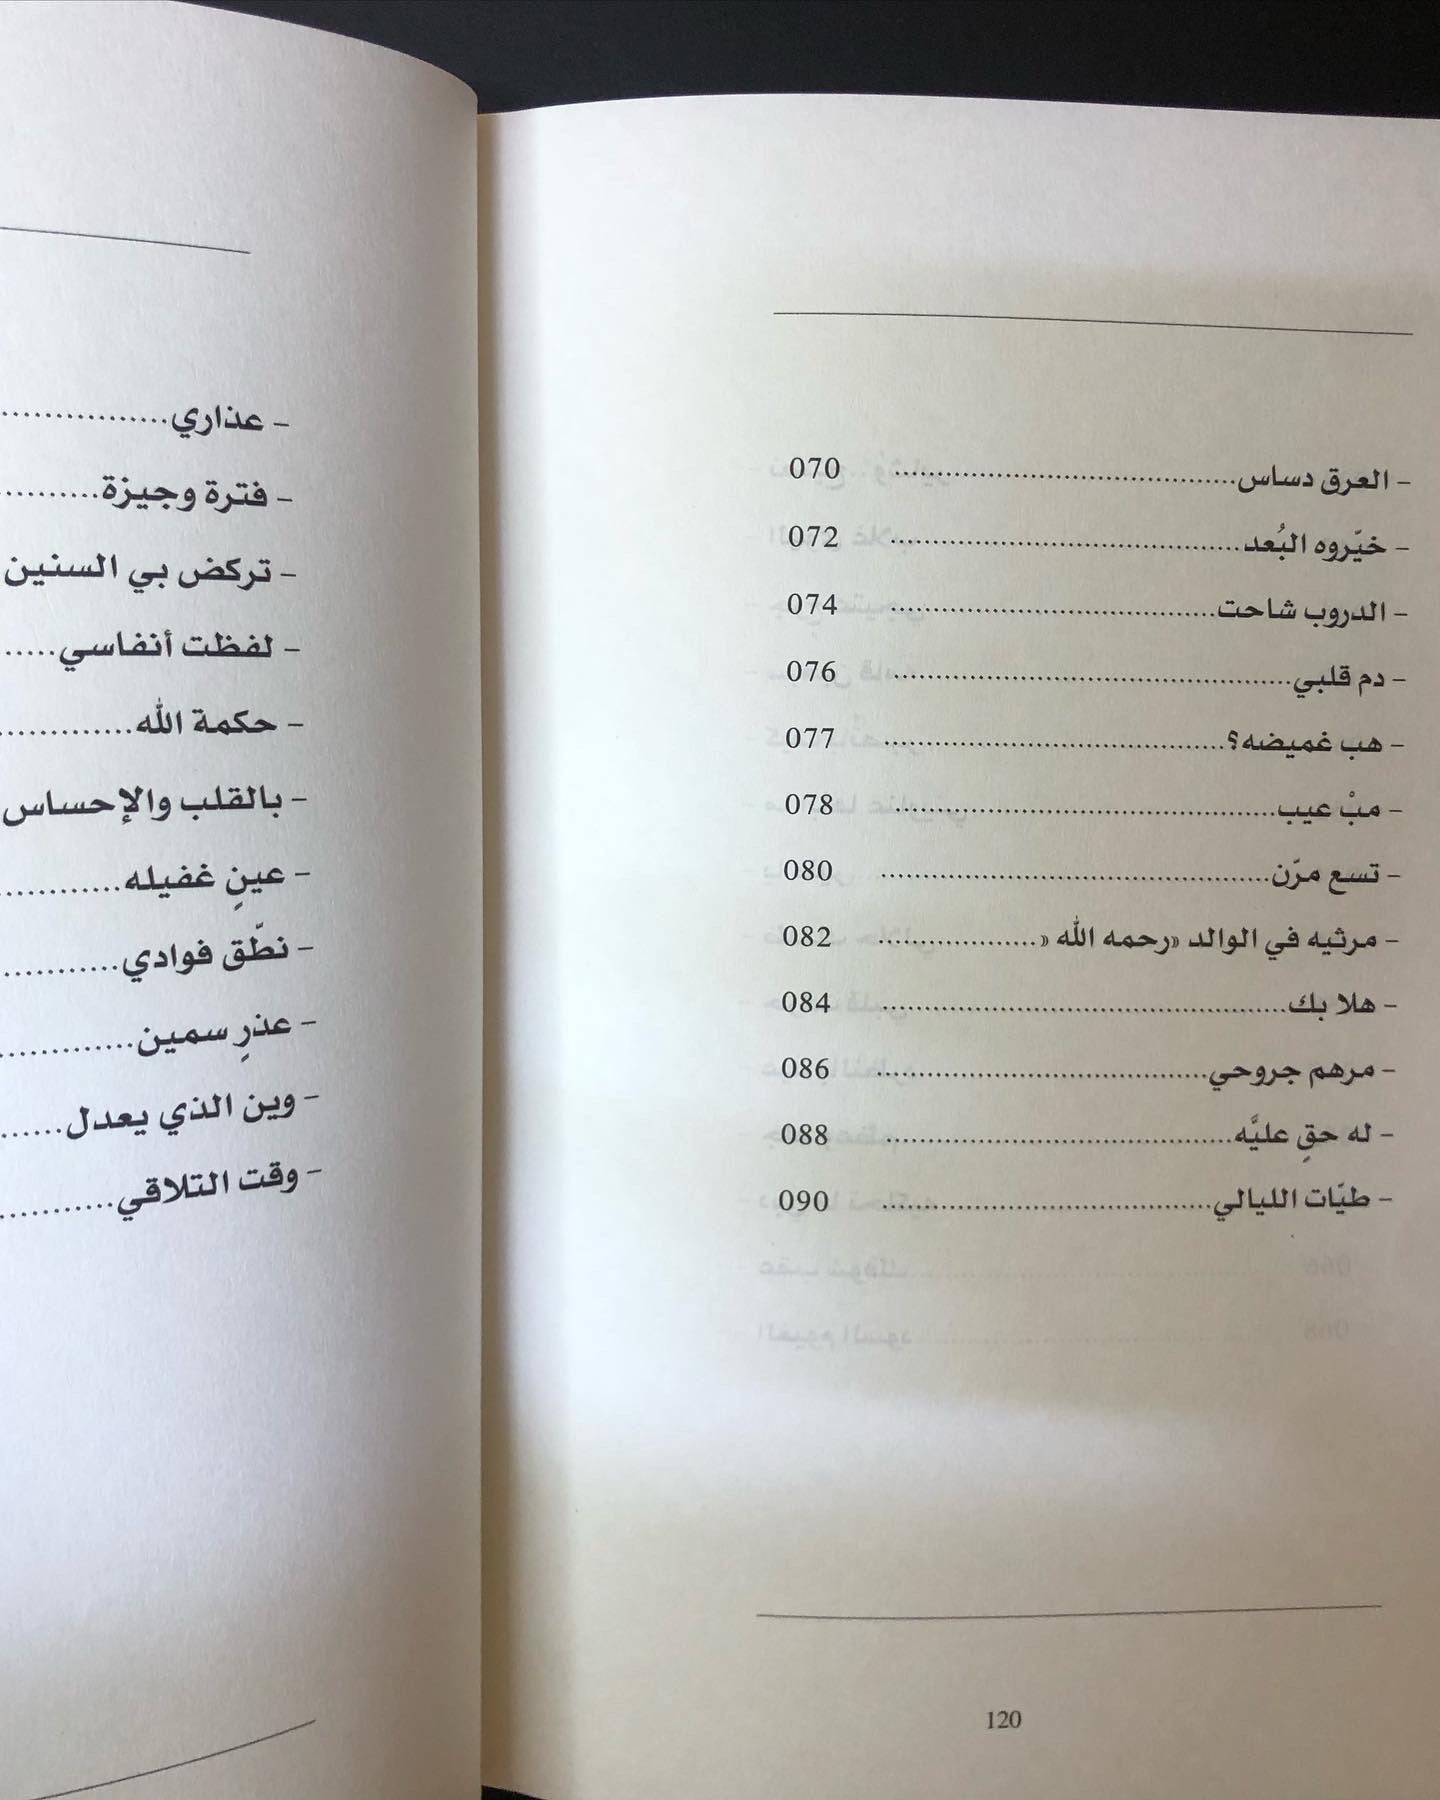 - العرق دساس.......................................... 070
- خيّروه البُعد.......................................... 072
- الدروب شاحت.......................................... 074
- دم قلبي.......................................... 076
- هب غميضه؟.......................................... 077
- مبْ عيب.......................................... 078
- تسع مرّن.......................................... 080
- مرثيه في الوالد «رحمه الله «.................... 082
- هلا بك.......................................... 084
- مرهم جروحي.......................................... 086
- له حقٍ عليَّه.......................................... 088
- طيّات الليالي.......................................... 090
120
- عذاري.................
- فترة وجيزة..........
- تركض بي السنين
- لفظت أنفاسي.....
- حكمة الله..............
- بالقلب والإحساس
- عينٍ غفيله............
- نطّق فوادي............
- عذرٍ سمين..............
- وين الذي يعدل......
- وقت التلاقي...........